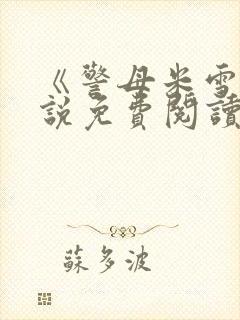 《警母米雪
說免費閱讀
蘇多波